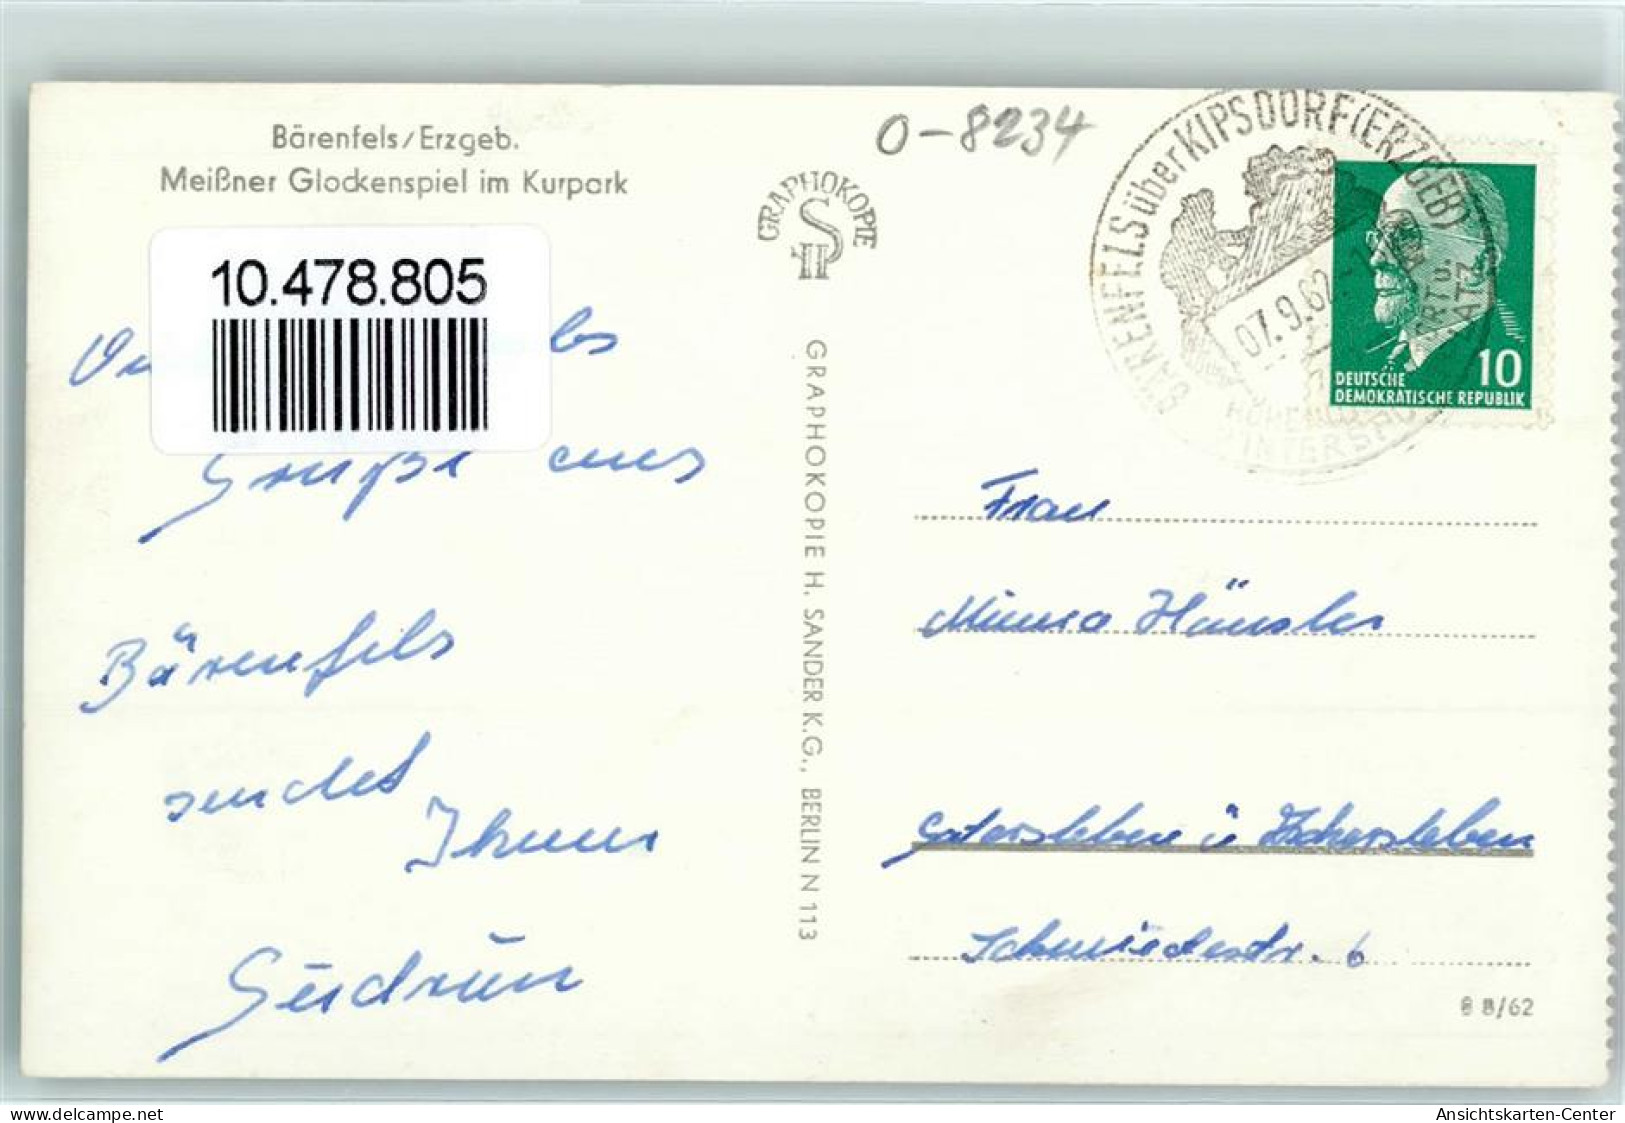 Bärenfels/Erzgeb.
Meißner Glockenspiel im Kurpark
O-8234
GRAPHOKOPIE
HS
10.478.805
Grüße aus
Bärenfels
sendet
Ihnen
Gudrun
GRAPHOKOPIE H. SANDER K.G., BERLIN N 113
BÄRENFELS über KIPSDORF (ERZGEB)
07.9.62
HÖHENLUFT
WINTERSPO
10
DEUTSCHE
DEMOKRATISCHE REPUBLIK
Frau
Minna Häusler
Gatersleben ü Aschersleben
Schmiedestr. 6
8 8/62
www.delcampe.net
Ansichtskarten-Center